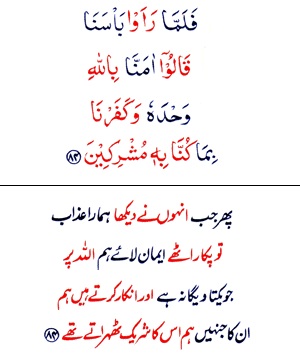 فَلَمَّا رَاَوْا بَاْسَنَا
قَالُوْٓا اٰمَنَّا بِاللّٰهِ
وَحْدَهٗ وَكَفَرْنَا
بِمَا كُنَّا بِهٖ مُشْرِكِيْنَ ﴿۸۴﴾
پھر جب انہوں نے دیکھا ہمارا عذاب
تو پکار اٹھے ایمان لائے ہم اللہ پر
جو یکتا و یگانہ ہے اور انکار کرتے ہیں ہم
ان کا جنہیں ہم اس کا شریک ٹھہراتے تھے ﴿۸۴﴾